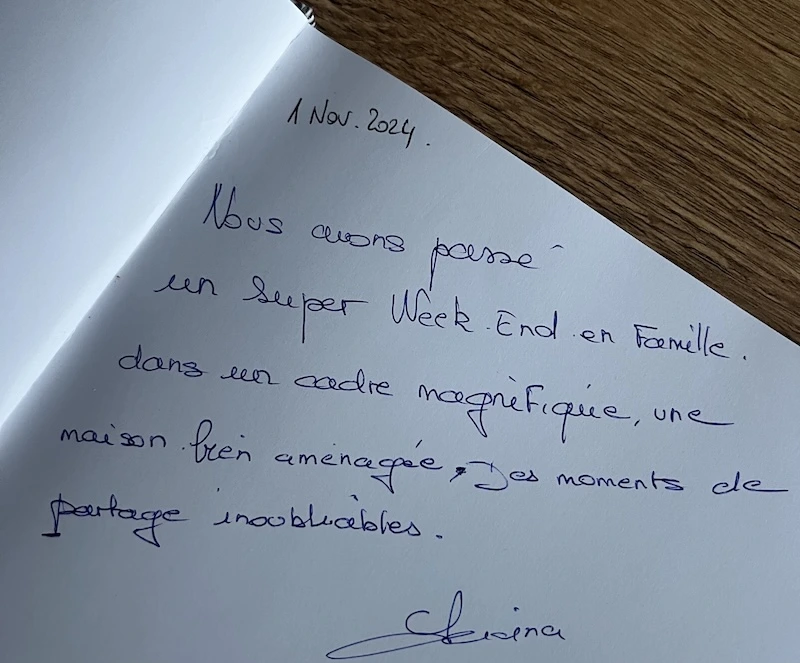 1 Nov. 2024.
Nous avons passé
un super Week.End en Famille.
dans un cadre magnifique, une
maison bien aménagée, Des moments de
partage inoubliables.